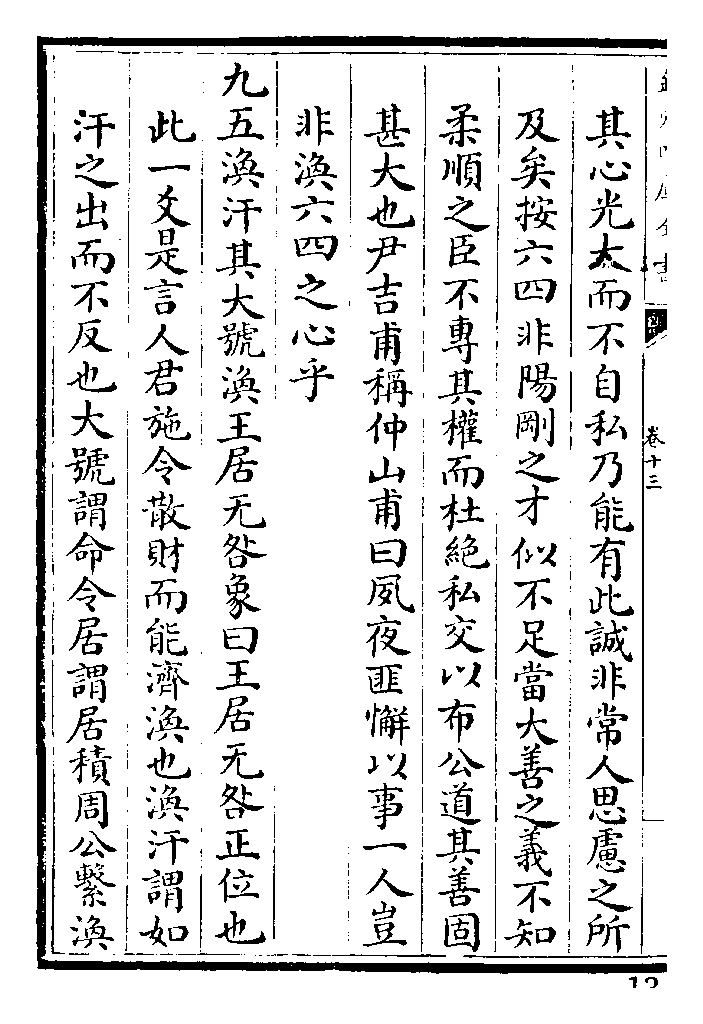 其心光大而不自私乃能有此誠非常人思慮之所
及矣按六四非陽剛之才似不足當大善之義不知
柔順之臣不專其權而杜絶私交以布公道其善固
甚大也尹吉甫稱仲山甫曰夙夜匪懈以事一人豈
非渙六四之心乎
九五渙汗其大號渙王居无咎象曰王居无咎正位也
此一爻是言人君施令散財而能濟渙也渙汗謂如
汗之出而不反也大號謂命令居謂居積周公繫渙
卷十三